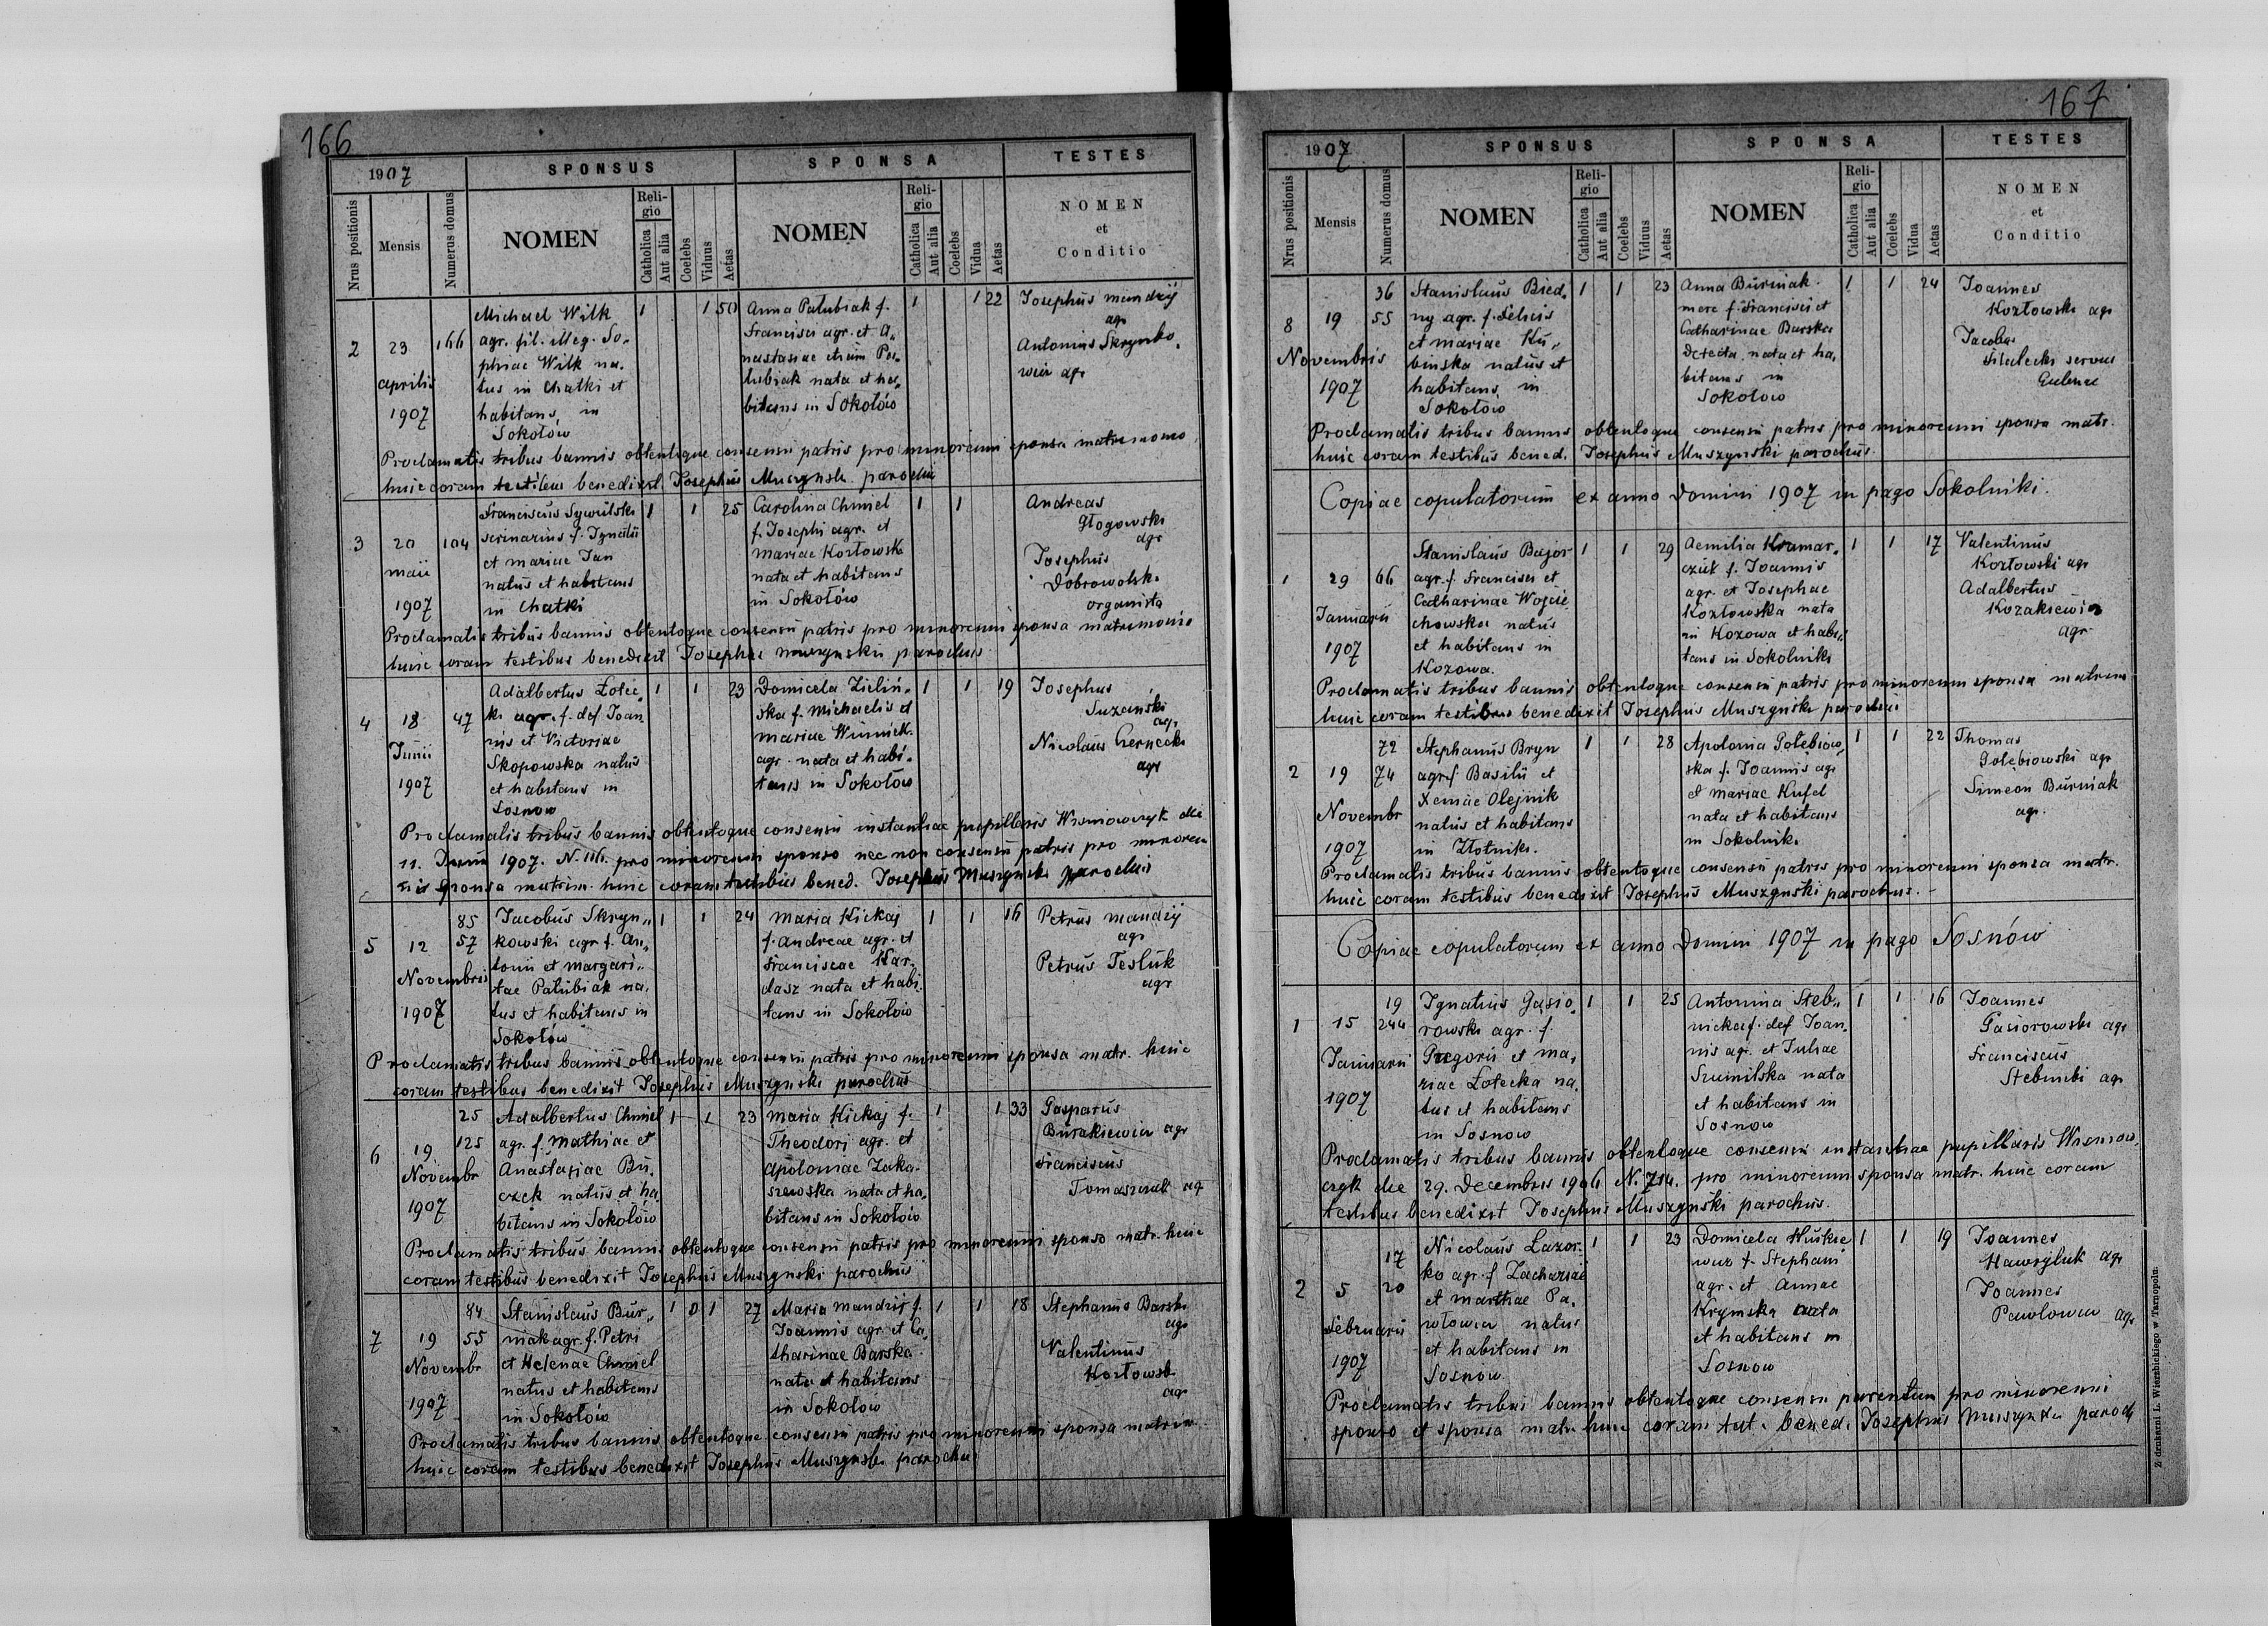 166
1907
SPONSUS
SPONSA
TESTES
Nrus positionis
Mensis
Numerus domus
NOMEN
Religio
Catholica
Aut alia
Coelebs
Viduus
Aetas
NOMEN
Religio
Catholica
Aut alia
Coelebs
Vidua
Aetas
NOMEN
et
Conditio
2
23
aprilis
1907
166
Michael Wilk
agr. fil. illeg. So„
phiae Wilk na„
tus in Chatki et
habitans in
Sokołów
1
1
50
Anna Palubiak f.
Francisci agr. et A„
nastasiae etiam Pa„
lubiak nata et ha„
bitans in Sokołów
1
1
22
Josephus Mandzij
agr
Antonius Skrynko„
wicz agr
Proclamatis tribus bannis obtentoque consensu patris pro minorenni sponsa matrimonio
huic coram testibus benedixit Josephus Muszynski parochus
3
20
maii
1907
104
Franciscus
f. Ignatii
et Mariae Jan
natus et habitans
in Chatki
1
1
25
Carolina Chmiel
f. Josephi agr. et
Mariae Kozłowska
nata et habitans
in Sokołów
1
1
Andreas
Głogowski
agr
Josephus
Dobrowolski
organista
Proclamatis tribus bannis obtentoque consensu patris pro minorenni sponsa matrimonio
huic coram testibus benedixit Josephus Muszynski parochus
4
18
Junii
1907
47
Adalbertus Łotec„
ki agr. f. def. Joan„
nis et Victoriae
Skopowska natus
et habitans in
Sosnow
1
1
23
Domicela Zieliń„
ska f. Michaelis et
Mariae Winnick.
agr. nata et habi„
tans in Sokołów
1
1
19
Josephus
Suzanski
agr
Nicolaus Czernecki
agr
Proclamatis tribus bannis obtentoque consensu instantiae pupillaris Wisniowczyk die
11. Junii 1907. N. 116. pro minorenni sponso nec non consensu patris pro minoren
ni sponsa matrim. huic coram testibus bened. Josephus Muszynski parochus
5
12
Novembris
1907
85
57
Jacobus Skryn„
kowski agr f. An„
tonii et Margari„
tae Palubiak na„
tus et habitans in
Sokołów
1
1
24
Maria Kickaj
f. Andreae agr. et
Franciscae Kar„
dasz nata et habi„
tans in Sokołów
1
1
16
Petrus Mandzij
agr
Petrus Tesluk
agr
Proclamatis tribus bannis obtentoque consensu patris pro minorenni sponsa matr. huic
coram testibus benedixit Josephus Muszynski parochus
6
19
Novembr
1907
25
125
Adalbertus Chmiel
agr. f. Mathiae et
Anastasiae Bu„
czek natus et ha„
bitans in Sokołów
1
1
23
Maria Kickaj f.
Theodori agr. et
Apoloniae Zaka„
szewska nata et ha„
bitans in Sokołów
1
1
33
Gasparus
Burakiewicz agr
Franciscus
agr
Proclamatis tribus bannis obtentoque consensu patris pro minorenni sponso matr. huic
coram testibus benedixit Josephus Muszynski parochus
7
19
Novembr
1907
84
55
Stanislaus Bur„
niak agr. f. Petri
et Helenae Chmiel
natus et habitans
in Sokołów
1
0
1
27
Maria Mandzij f.
Joannis agr. et Ca„
tharinae Barska
nata et habitans
in Sokołów
1
1
18
Stephanus Barski
agr
Valentinus
Kozłowski
agr
Proclamatis tribus bannis obtentoque consensu patris pro minorenni sponsa matrim.
huic coram testibus benedixit Josephus Muszynski parochus
167
1907
SPONSUS
SPONSA
TESTES
Nrus positionis
Mensis
Numerus domus
NOMEN
Religio
Catholica
Aut alia
Coelebs
Viduus
Aetas
NOMEN
Religio
Catholica
Aut alia
Coelebs
Vidua
Aetas
NOMEN
et
Conditio
8
19
Novembris
1907
36
55
Stanislaus Bied„
ny agr. f. Felicis
et Mariae Ku„
binska natus et
habitans in
Sokołów
1
1
23
Anna Burniak
f. Francisci et
Catharinae Barska
nata et ha„
bitans in
Sokołów
1
1
24
Joannes
Kozłowski agr
Jacobus
servus
Proclamatis tribus bannis obtentoque consensu patris pro minorenni sponsa matr.
huic coram testibus bened. Josephus Muszynski parochus.
Copiae copulatorum ex anno Domini 1907 in pago Sokolniki.
1
29
Januarii
1907
66
Stanislaus Bajor
agr. f. Francisci et
Catharinae Wojcie„
chowska natus
et habitans in
Kozowa.
1
1
29
Aemilia Kramar„
czuk f. Joannis
agr. et Josephae
Kozłowska nata
in Kozowa et habi„
tans in Sokolniki
1
1
17
Valentinus
Kozłowski agr
Adalbertus
Kozakiewicz
agr
Proclamatis tribus bannis obtentoque consensu patris pro minorenni sponsa matrim
huic coram testibus benedixit Josephus Muszynski parochus
2
19
Novembr
1907
72
74
Stephanus Bryn
agr f. Basilii et
Xeniae Olejnik
natus et habitans
in Złotniki.
1
1
28
Apolonia Gołebiow„
ska f. Joannis agr
et Mariae Kufel
nata et habitans
in Sokolniki
1
1
22
Thomas
Gołebiowski agr
Simeon Burniak
agr.
Proclamatis tribus bannis obtentoque consensu patris pro minorenni sponsa matr.
huic coram testibus benedixit Josephus Muszynski parochus. –
Copiae copulatorum ex anno Domini 1907 in pago Sosnów
1
15
Januarii
1907
19
244
Ignatius Gąsio„
rowski agr. f.
Gregorii et Ma„
riae Łotecka na„
tus et habitans
in Sosnow
1
1
25
Antonina Steb„
nicka f. def Joan„
nis agr. et Juliae
Szumilska nata
et habitans in
Sosnow
1
1
16
Joannes
Gasiorowski agr
Franciscus
Stebnicki agr
Proclamatis tribus bannis obtentoque consensu instantiae pupillaris Wisniow„
czyk die 29. Decembris 1906 N. 714. pro minorenni sponsa matr. huic coram
testibus benedixit Josephus Muszynski parochus.
2
5
Februarii
1907
17
20
Nicolaus Łazor„
ko agr. f. Zachariae
et Marthae Pa„
włowicz natus
et habitans in
Sosnow
1
1
23
Domicela Huskie
wicz f. Stephani
agr. et Annae
Krymska nata
et habitans in
Sosnow
1
1
19
Joannes
Hawryluk agr
Joannes
Pawlowicz agr
Proclamatis tribus bannis obtentoque consensu parentum pro minorenni
sponso et sponsa matr. huic coram test. bened. Josephus Muszynski paroch
Z drukarni L. Wierzbickiego w Tarnopolu.